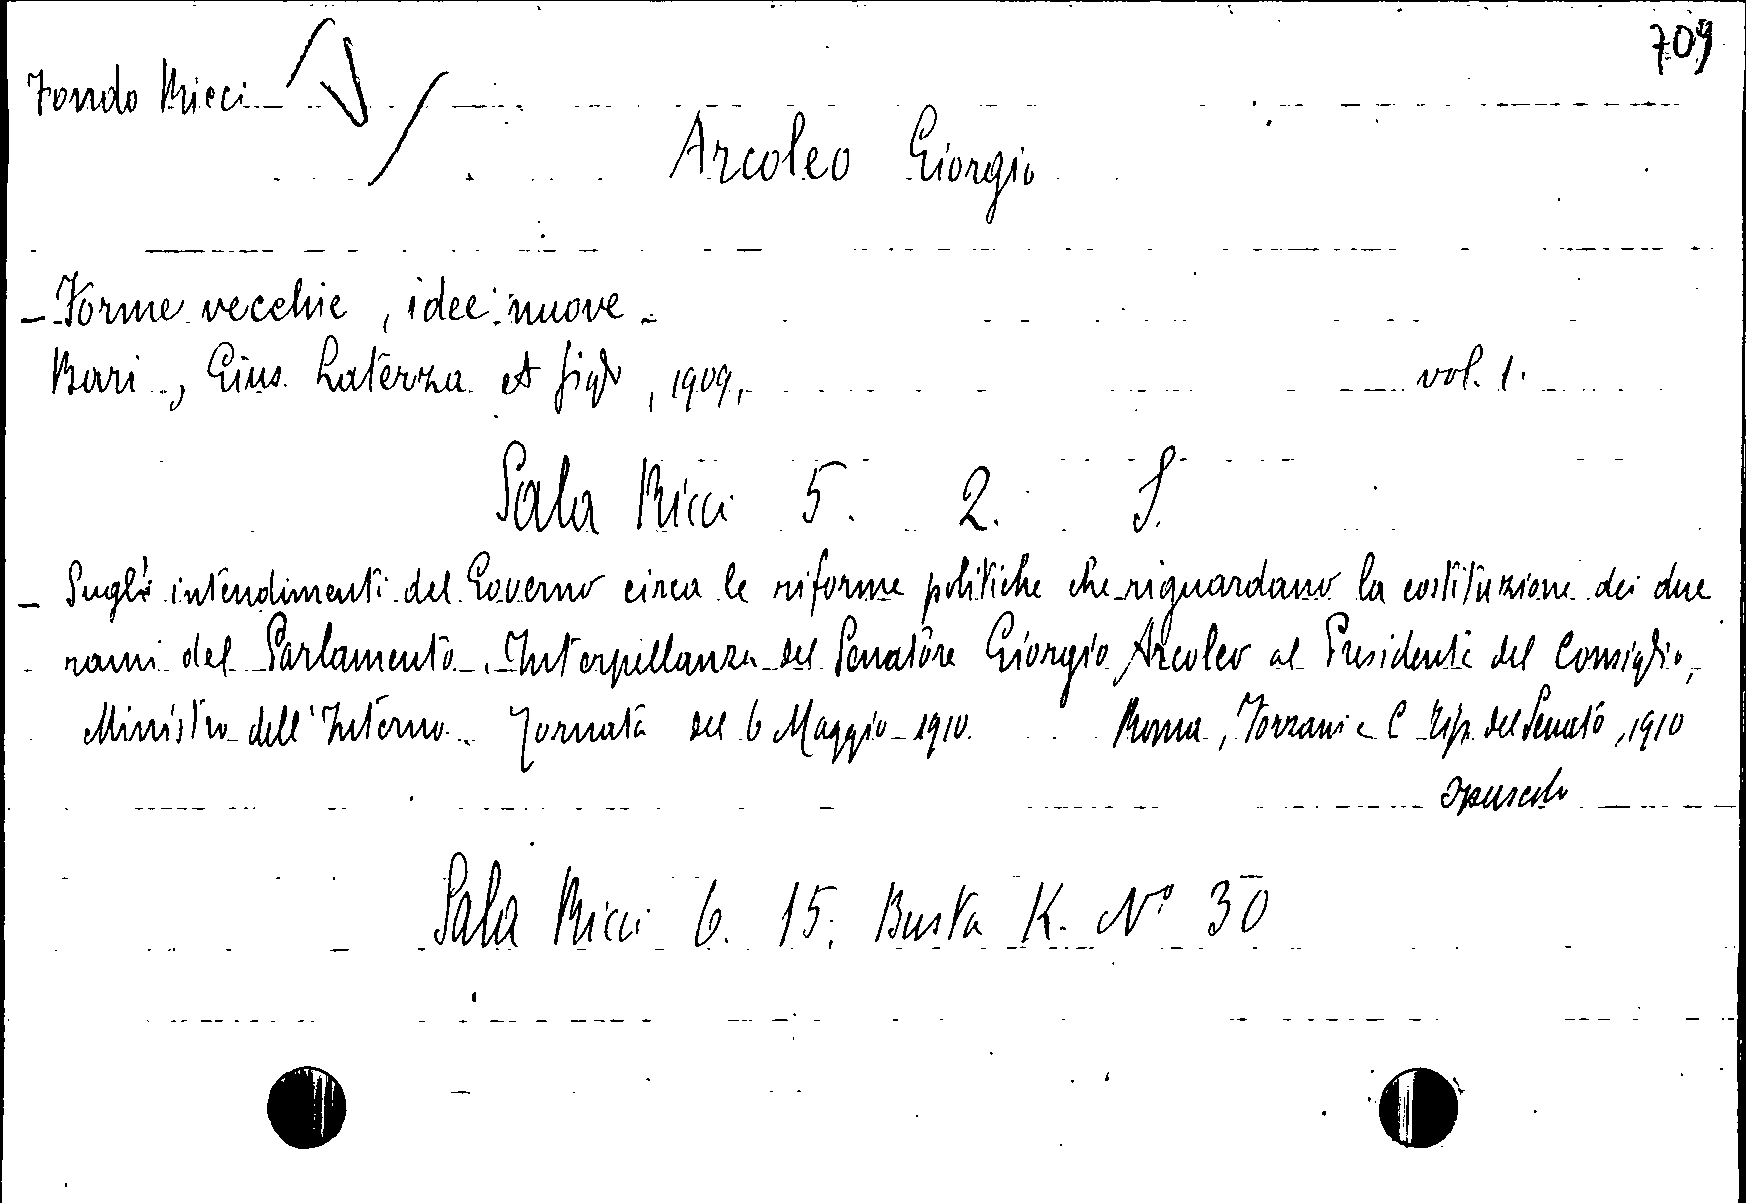 709
Fondo Ricci
Arcoleo Giorgio
- Forme vecchie, idee nuove -
Bari, Gius. Laterza et figli, 1909, vol. 1.
Sala Ricci 5. 2. S.
- Sugli intendimenti del Governo circa le riforme politiche che riguardano la costituzione dei due
rami del Parlamento. Interpellanza del Senatore Giorgio Arcoleo al Presidente del Consiglio,
Ministro dell'Interno. Tornata del 6 Maggio 1910. Roma, Forzani e C Tip. del Senato, 1910
opuscolo
Sala Ricci 6. 15. Busta K. N° 30